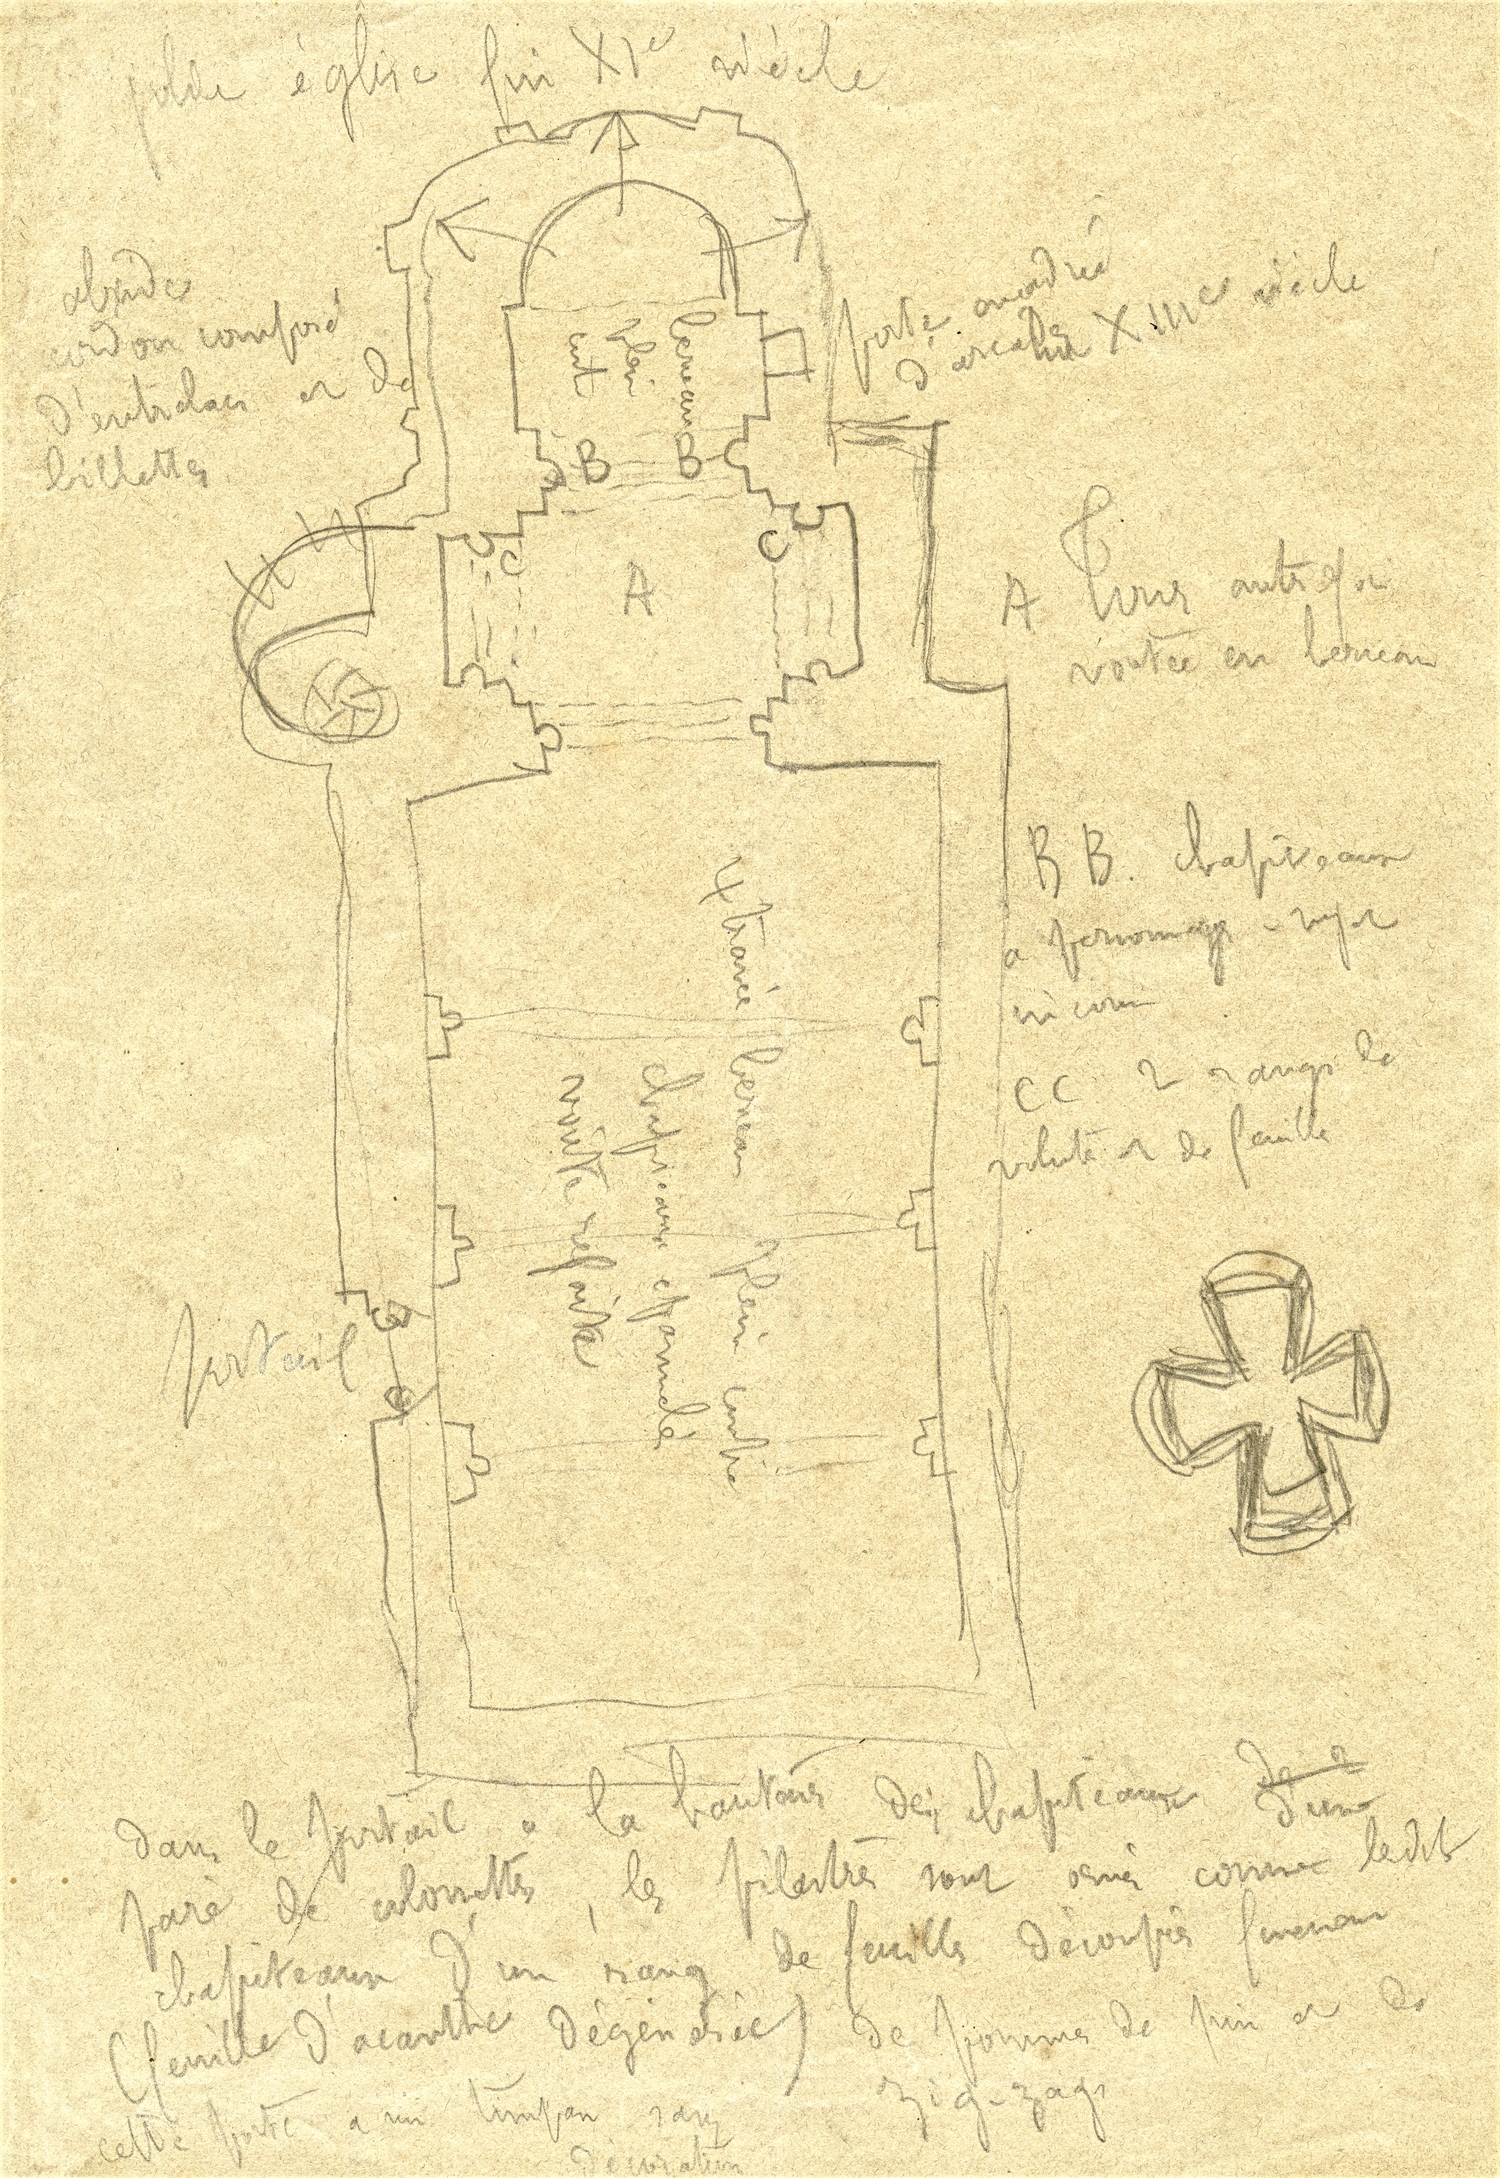 église fin XIe siècle
abside
cordon composé
d'entrelacs et de
billettes
porte
d'arcature XIIIe siècle
berceau
plein
cint
B B
C C
A
A Tour autrefoi
voutée en berceau
BB. chapiteaux
a personnages
CC 2 rangs de
volute et de feuille
4 travée berceau plein cintre
chapiteaux épannelé
voûte refaite
portail
dans le portail a la hauteur des chapiteaux d'une
paré de colonettes, les pilastres sont ornés comme ledit
chapiteaux d'un rang de feuilles découpés
(feuille d'acanthe dégénérée) de pommes de pin et de
zig-zags
cette porte a un timpan sans
décoration